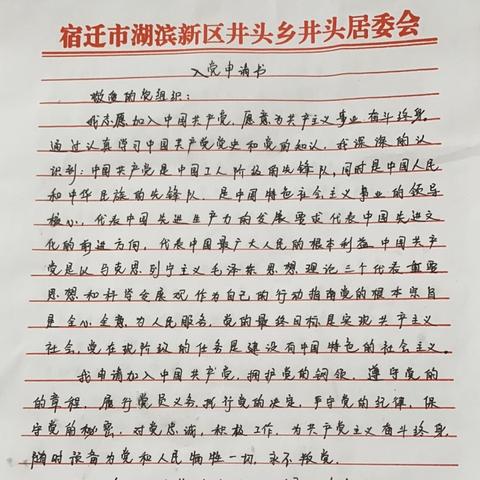 宿迁市湖滨新区井头乡井头居委会
入党申请书
敬爱的党组织：
我志愿加入中国共产党，愿意为共产主义事业奋斗终身。
通过认真学习中国共产党党史和党的知认，我深深的认
识到：中国共产党是中国工人阶级的先锋队，同时是中国人民
和中华民族的先锋队，是中国特色社会主义事业的领导
核心，代表中国先进生产力的发展要求代表中国先进文
化的前进方向，代表中国最广大人民的根本利益中国共产
党是以马克思列宁主义毛泽东思想理论三个代表重要
思想和科学发展观作为自己的行动指南党的根本宗旨
是全心全意为人民服务，党的最终目标是实现共产主义
社会，党在现阶段的任务是建设有中国特色的社会主义。
我申请加入中国共产党，拥护党的纲领，遵守党的
的章程，履行党员义务，执行党的决定，严守党的纪律，保
守党的秘密，对党忠诚，积极工作，为共产党主义奋斗终身，
随时设备为党和人民牺牲一切，永不叛党。